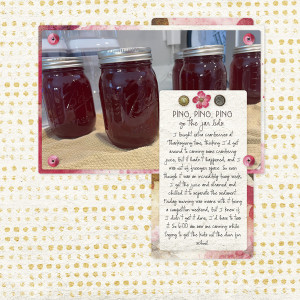 PING, PING, PING
go the jar lids
I bought extra cranberries at
Thanksgiving time, thinking I'd get
around to canning some cranberry
juice, but it hadn't happened, and I
was out of freezer space. So even
though it was an incredibly busy week,
I got the juice and strained and
chilled it to separate the sediment.
Friday morning was insane with it being
a competition weekend, but I knew if
I didn't get it done, I'd have to toss
it. So 6:00 am saw me canning while
trying to get the kids out the door for
school.